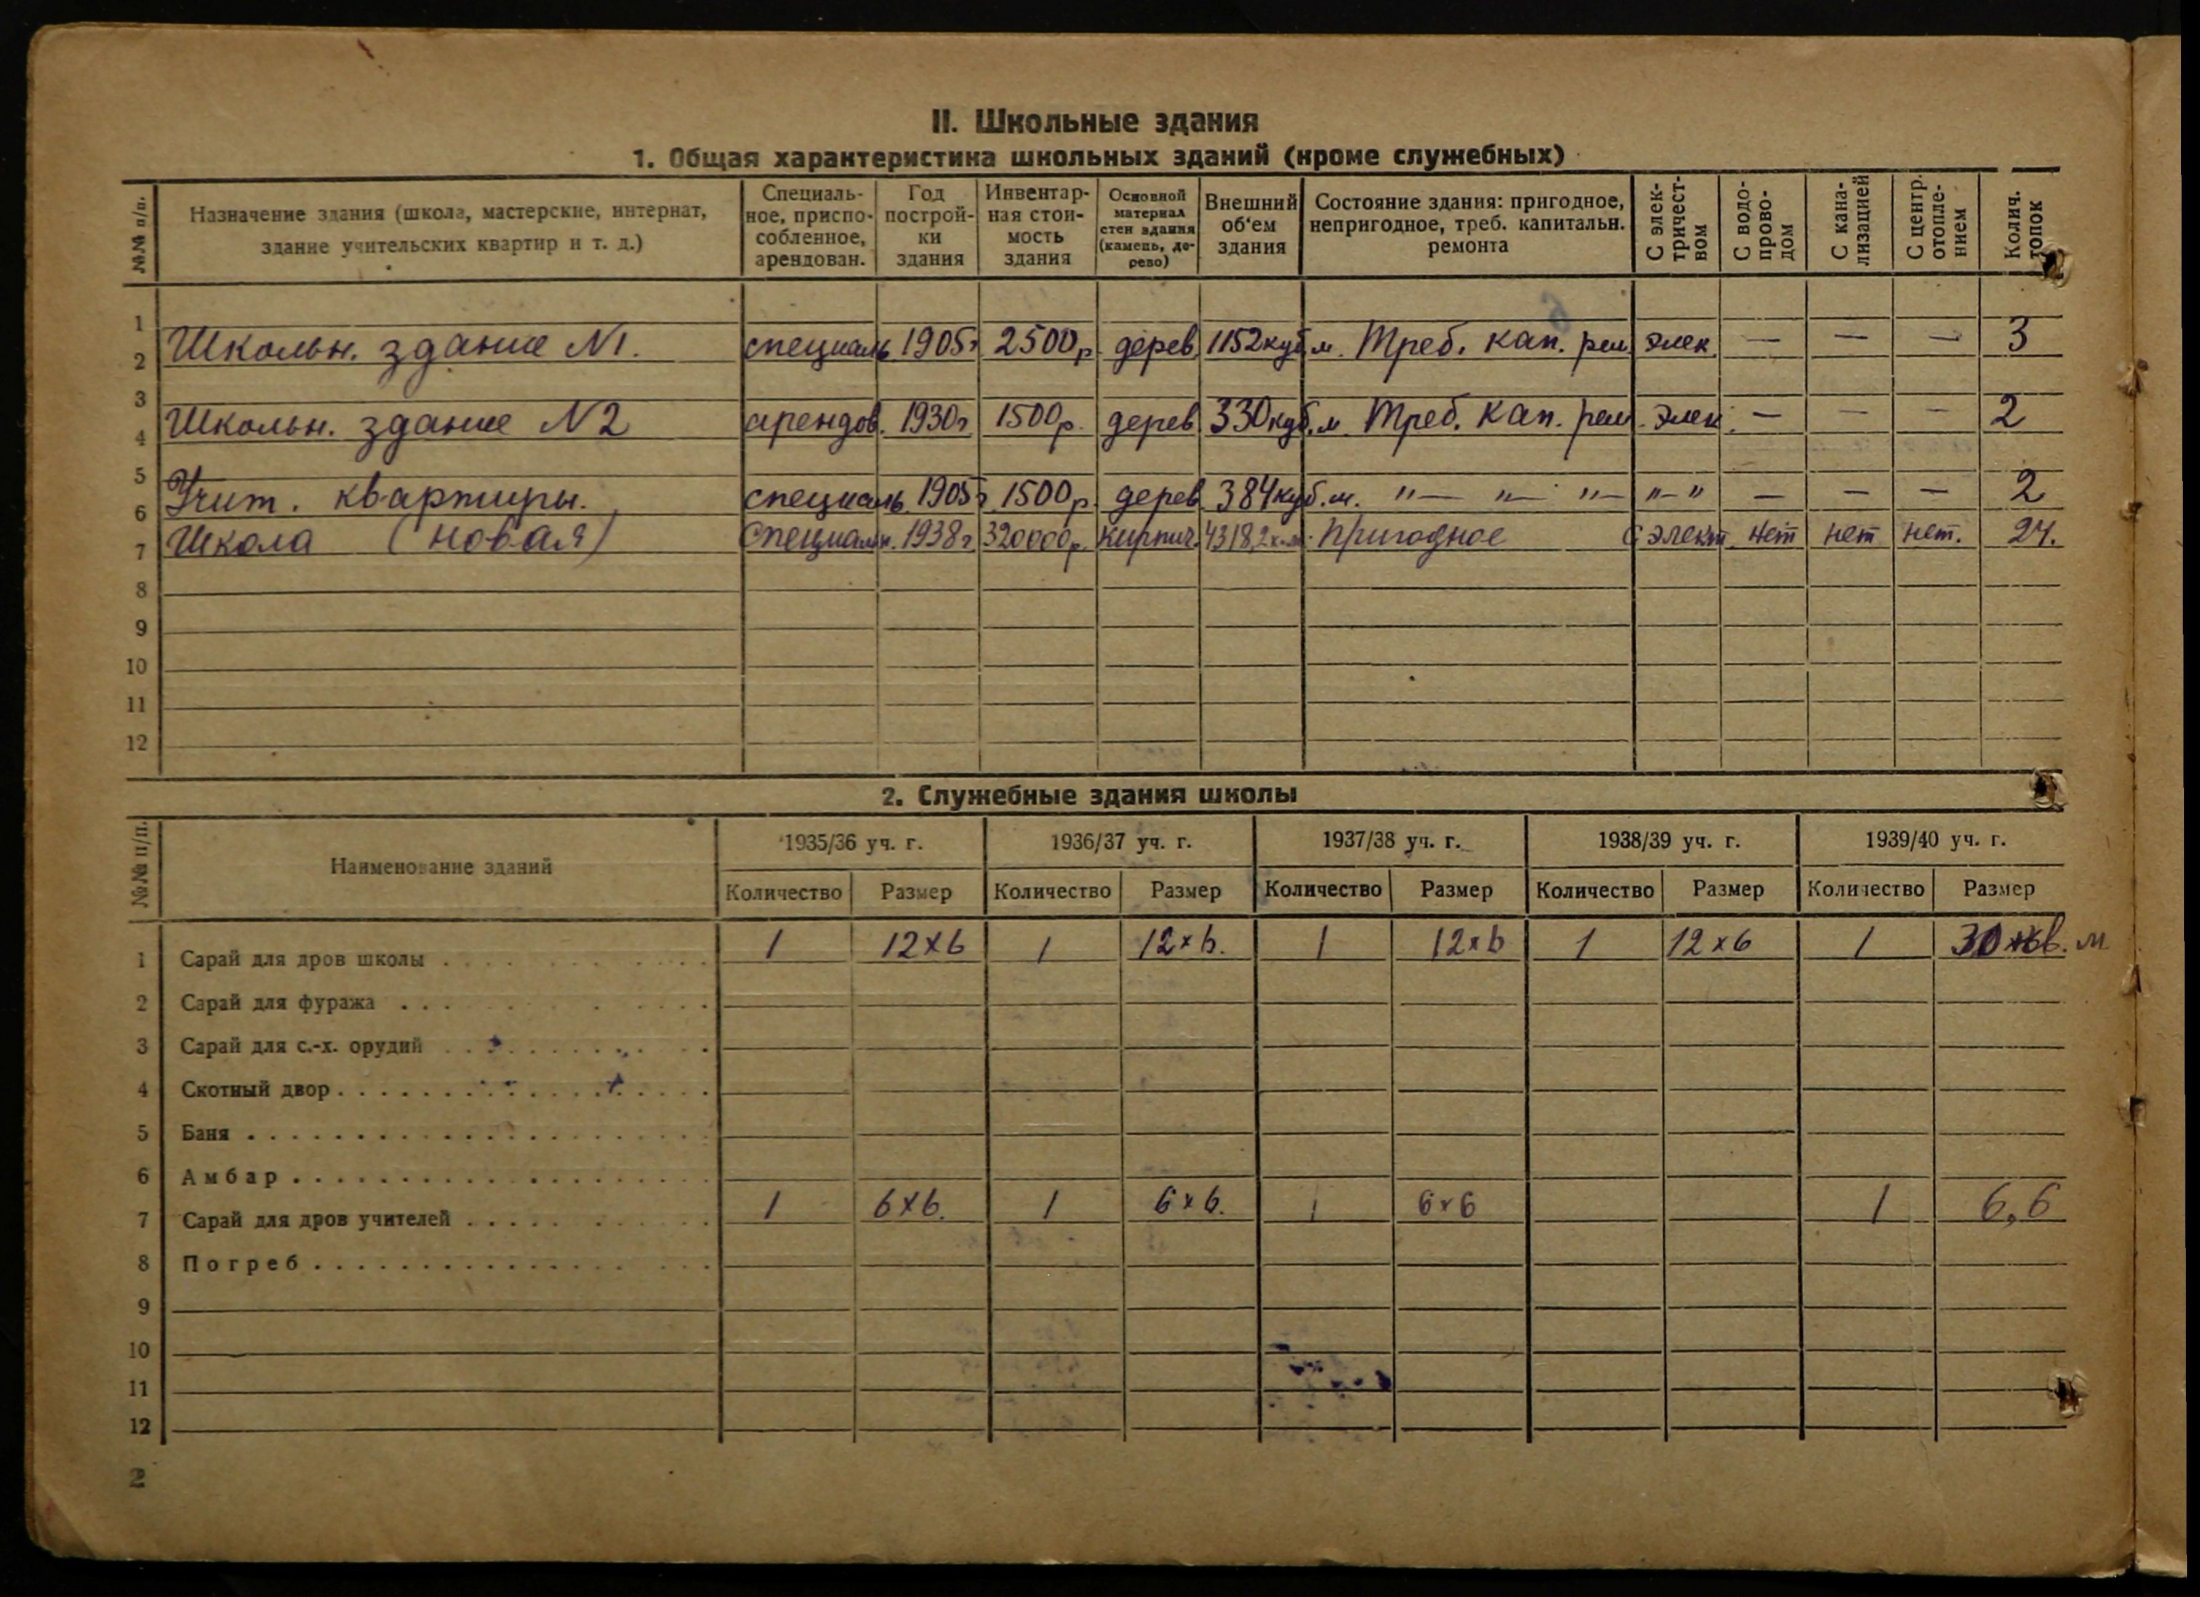 II. Школьные здания
1. Общая характеристика школьных зданий (кроме служебных)
№№ п/п. Назначение здания (школа, мастерские, интернат, здание учительских квартир и т. д.) Специаль-ное, приспо-собленное, арендован. Год построй-ки здания Инвентар-ная стои-мость здания Основной материал стен здания (камень, де-рево) Внешний об‘ем здания Состояние здания: пригодное, непригодное, треб. капитальн. ремонта С элек-тричест-вом С водо-прово-дом С кана-лизацией С центр. отопле-нием Колич. топок
1
2 Школьн. здание N1. специаль 1905г 2500р. дерев 1152куб.м. Треб. кап. рем. элек. — — — 3
3
4 Школьн. здание N2 арендов. 1930г 1500р. дерев 330куб.м. Треб. кап. рем. элек. — — — 2
5
6 Учит. квартиры. специаль 1905г. 1500р. дерев 384куб.м. "— "— "— "—" — — — 2
7 Школа (новая) Специальн. 1938г. 320000р. кирпич. 4318,2к.м. Пригодное с элект. нет нет нет. 24.
8
9
10
11
12
2. Служебные здания школы
№№ п/п. Наименование зданий 1935/36 уч. г. 1936/37 уч. г. 1937/38 уч. г. 1938/39 уч. г. 1939/40 уч. г.
Количество Размер Количество Размер Количество Размер Количество Размер Количество Размер
1 Сарай для дров школы 1 12×6 1 12×6. 1 12×6 1 12×6 1 30 кв. м
2 Сарай для фуража
3 Сарай для с.-х. орудий
4 Скотный двор
5 Баня
6 Амбар
7 Сарай для дров учителей 1 6×6. 1 6×6. 1 6×6 1 6,6
8 Погреб
9
10
11
12
2